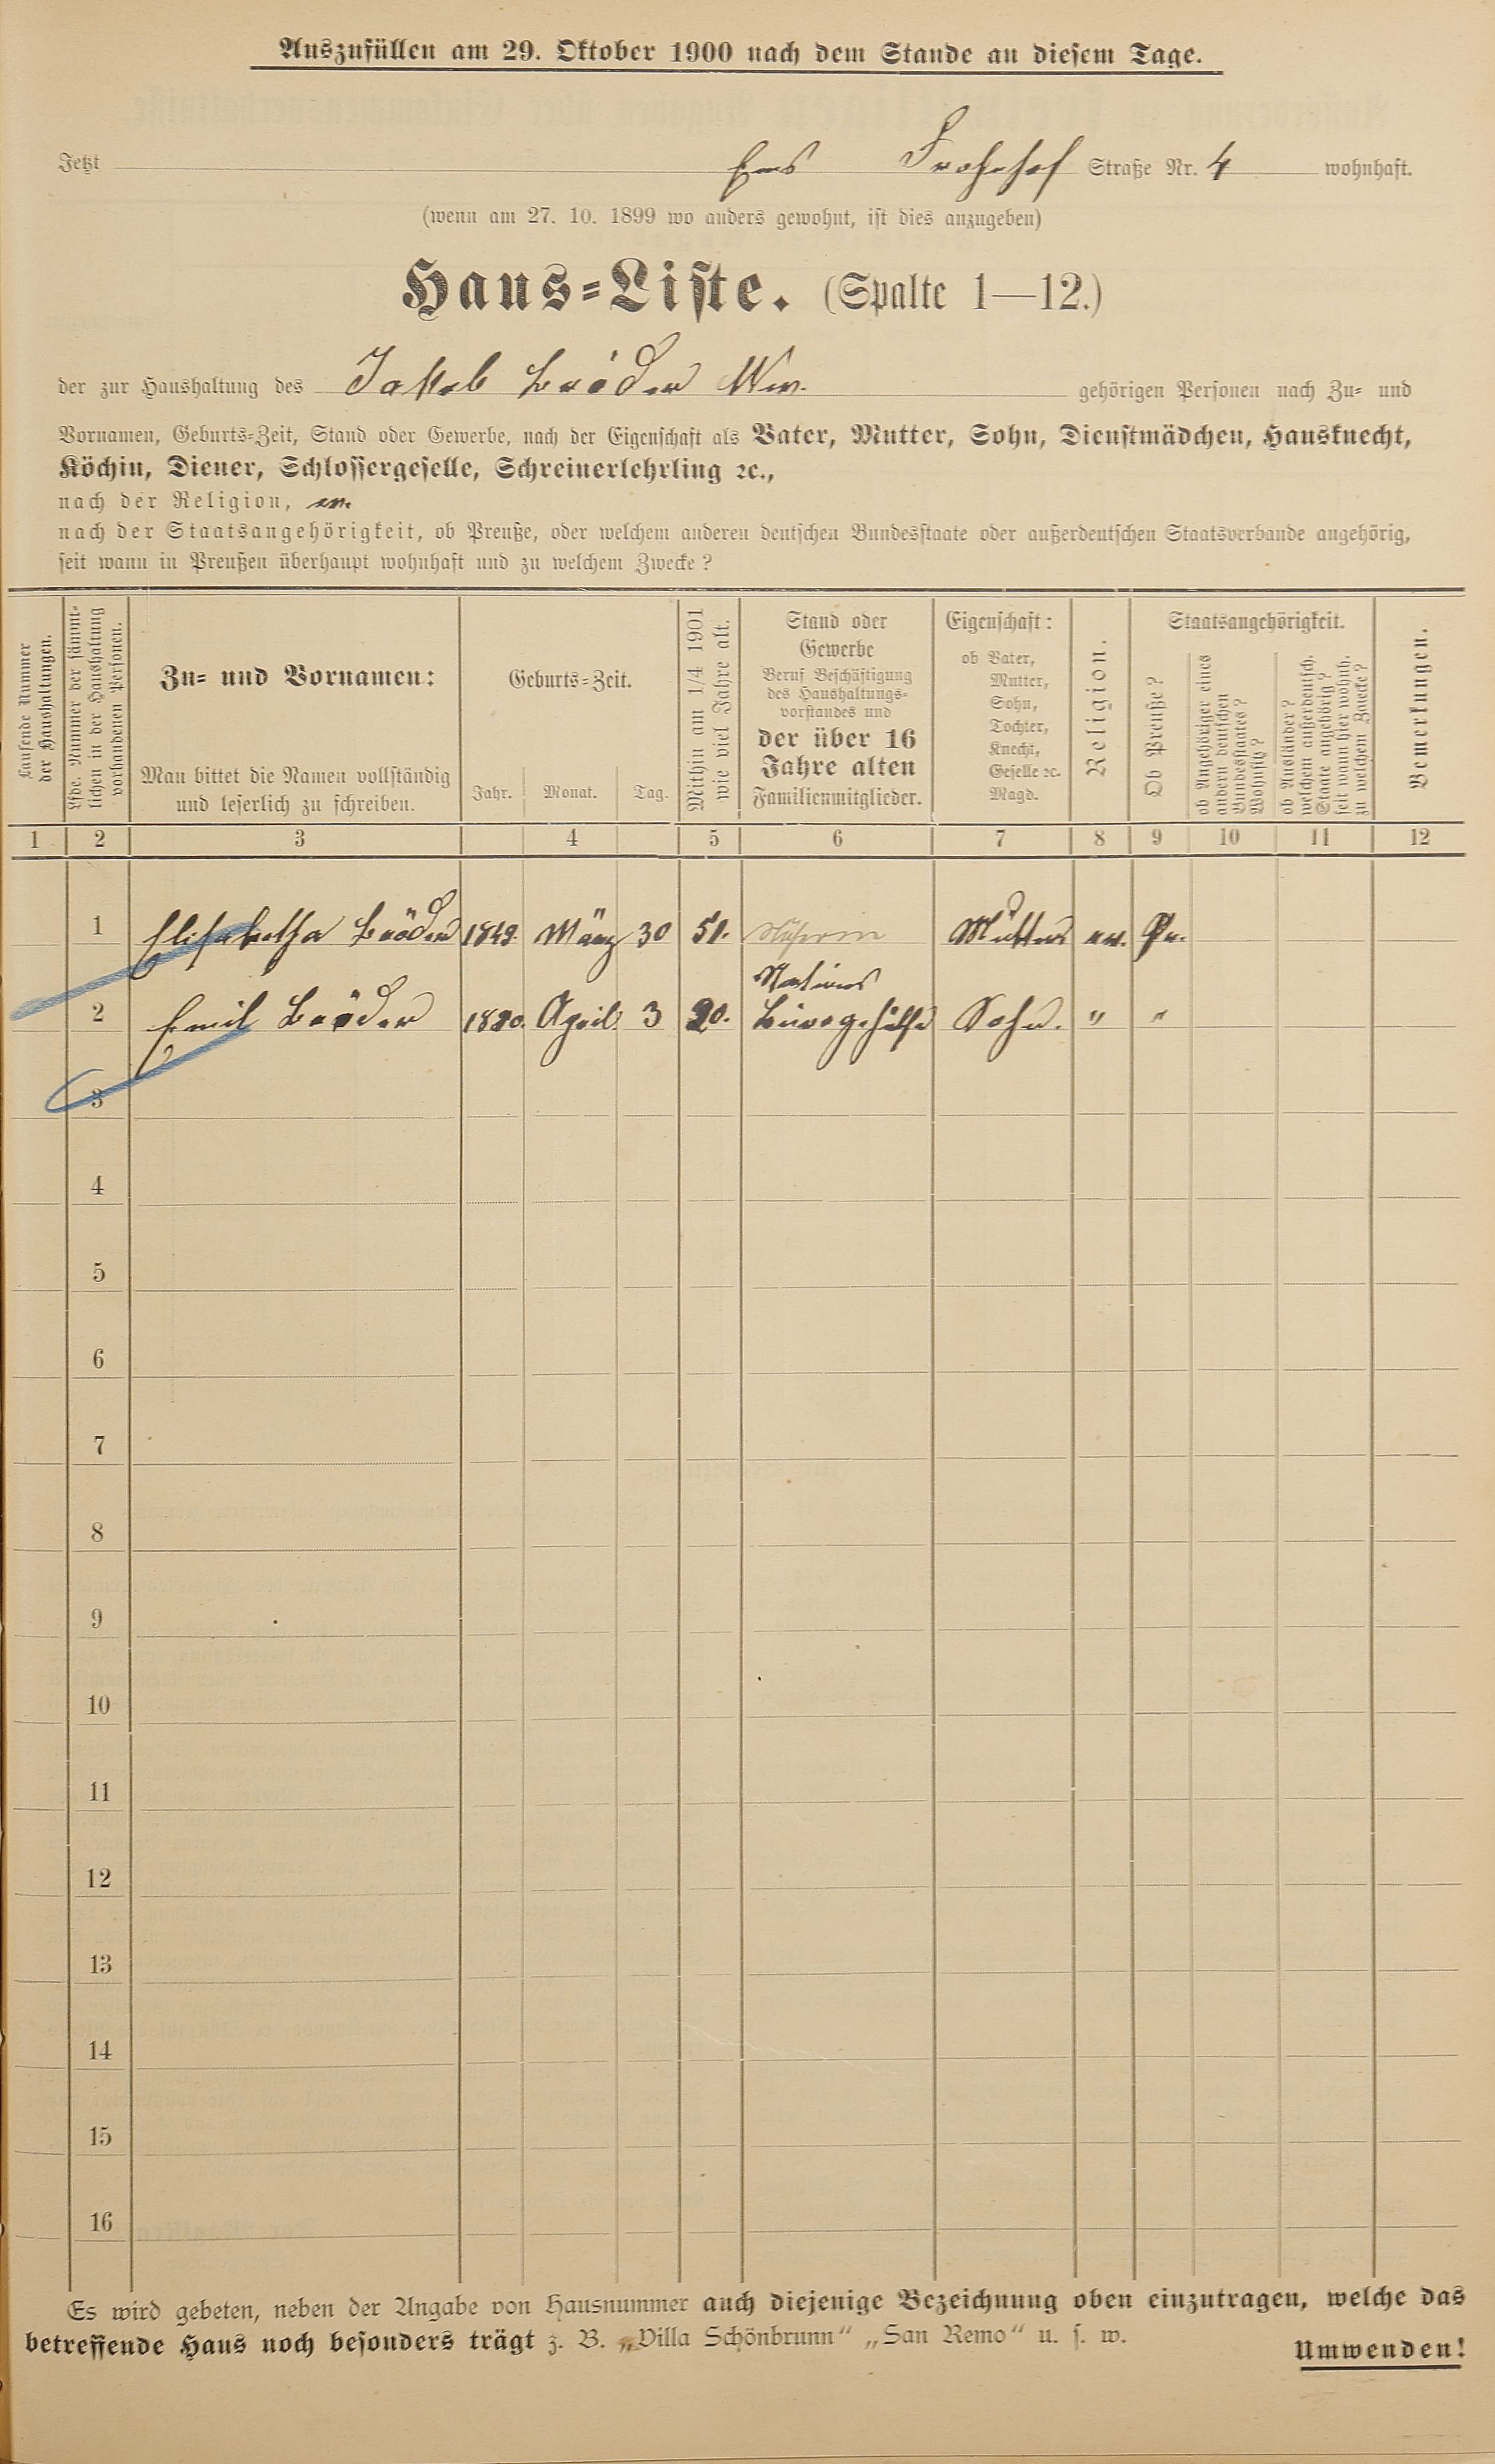 Auszufüllen am 29. Oktober 1900 nach dem Stande an diesem Tage.
Jetzt Ems Frohnhof Straße Nr. 4 wohnhaft.
(wenn am 27. 10. 1899 wo anders gewohnt, ist dies anzugeben)
Haus-Liste. (Spalte 1—12.)
der zur Haushaltung des Jakob Bröder Ww. gehörigen Personen nach Zu- und
Vornamen, Geburts-Zeit, Stand oder Gewerbe, nach der Eigenschaft als Vater, Mutter, Sohn, Dienstmädchen, Hausknecht,
Köchin, Diener, Schlossergeselle, Schreinerlehrling ꝛc.,
nach der Religion, ev.
nach der Staatsangehörigkeit, ob Preuße, oder welchem anderen deutschen Bundesstaate oder außerdeutschen Staatsverbande angehörig,
seit wann in Preußen überhaupt wohnhaft und zu welchem Zwecke?
Laufende Nummer
der Haushaltungen.
Lfde. Nummer der sämmt-
lichen in der Haushaltung
vorhandenen Personen.
Zu- und Vornamen:
Man bittet die Namen vollständig
und leserlich zu schreiben.
Geburts-Zeit.
Jahr. Monat. Tag.
Mithin am 1/4 1901
wie viel Jahre alt.
Stand oder
Gewerbe
Beruf Beschäftigung
des Haushaltungs-
vorstandes und
der über 16
Jahre alten
Familienmitglieder.
Eigenschaft:
ob Vater,
Mutter,
Sohn,
Tochter,
Knecht,
Geselle ꝛc.
Magd.
Religion.
Staatsangehörigkeit.
Ob Preuße?
ob Angehöriger eines
andern deutschen
Bundesstaates?
Wohnsitz?
ob Ausländer?
welchem außerdeutsch.
Staate angehörig?
seit wann hier wohnh.
zu welchem Zwecke?
Bemerkungen.
1 2 3 4 5 6 7 8 9 10 11 12
1 Elisabetha Bröder 1849. März 30 51. Näherin Mutter ev. Pr.
2 Emil Bröder 1880. April 3 20. Bürogehülfe Sohn. " "
3
4
5
6
7
8
9
10
11
12
13
14
15
16
Es wird gebeten, neben der Angabe von Hausnummer auch diejenige Bezeichnung oben einzutragen, welche das
betreffende Haus noch besonders trägt z. B. „Villa Schönbrunn“ „San Remo“ u. s. w.
Umwenden!